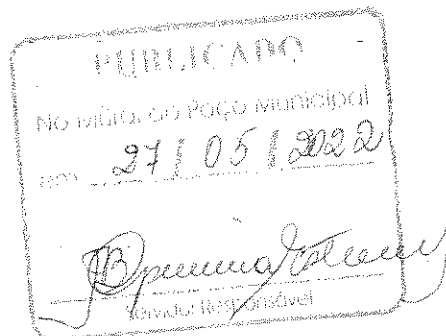 PUBLICADO
No Mural do Paço Municipal
em 27 / 05 / 2022
Servidor Responsável